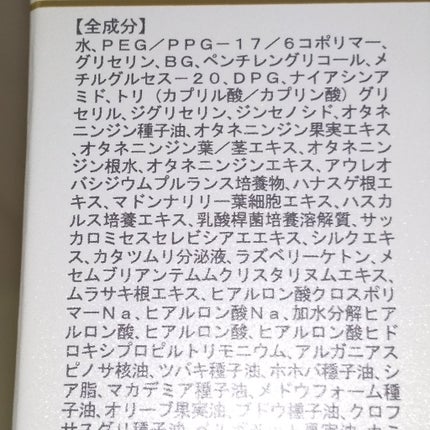 【全成分】
水、PEG/PPG-17/6コポリマー、
グリセリン、BG、ペンチレングリコール、メ
チルグルセス-20、DPG、ナイアシンア
ミド、トリ(カプリル酸/カプリン酸)グリ
セリル、ジグリセリン、ジンセノシド、オタネ
ニンジン種子油、オタネニンジン果実エキス
、オタネニンジン葉/茎エキス、オタネニン
ジン根水、オタネニンジンエキス、アウレオ
バシジウムプルランス培養物、ハナスゲ根エ
キス、マドンナリリー葉細胞エキス、ハスカ
ルス培養エキス、乳酸桿菌培養溶解質、サッ
カロミセスセレビシアエエキス、シルクエキ
ス、カタツムリ分泌液、ラズベリーケトン、メ
セムブリアンテムムクリスタリヌムエキス、
ムラサキ根エキス、ヒアルロン酸クロスポリ
マーNa、ヒアルロン酸Na、加水分解ヒア
ルロン酸、ヒアルロン酸、ヒアルロン酸ヒド
ロキシプロピルトリモニウム、アルガニアス
ピノサ核油、ツバキ種子油、ホホバ種子油、シ
ア脂、マカデミア種子油、メドウフォーム種
子油、オリーブ果実油、ブドウ種子油、クロフ
サスグリ種子油、